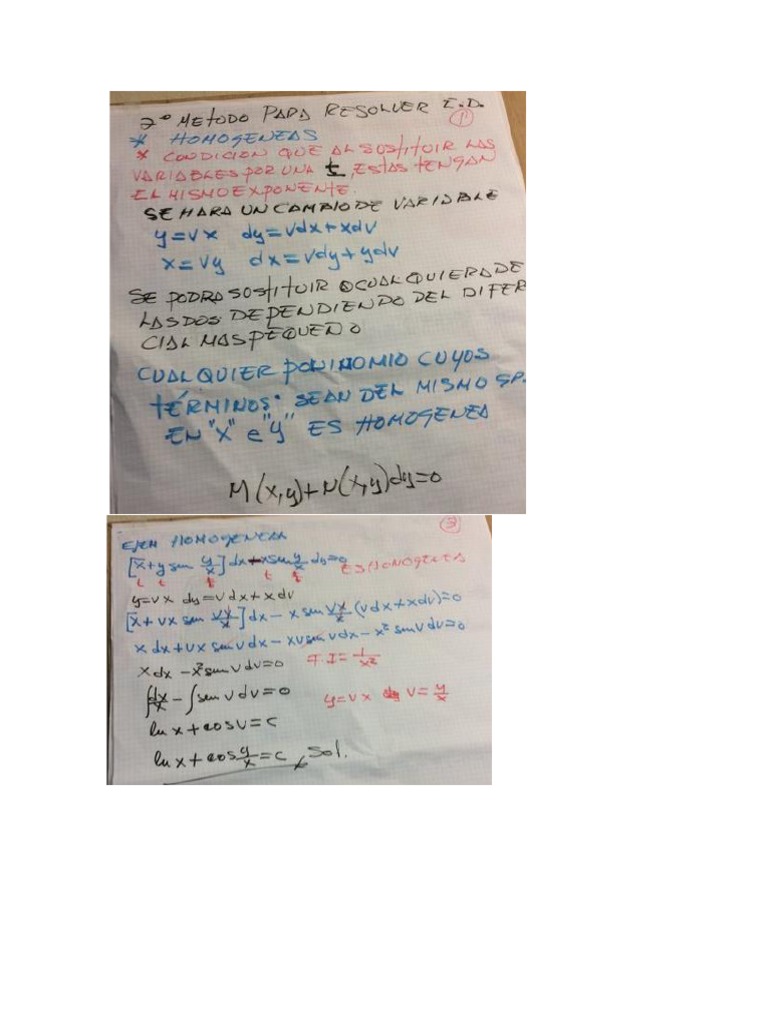 2º METODO PARA RESOLVER E.D.
1
* HOMOGENEAS
* CONDICION QUE AL SUSTITUIR LAS
VARIABLES POR UNA t, ESTAS TENGAN
EL MISMO EXPONENTE.
SE HARA UN CAMBIO DE VARIABLE
y=vx dy=vdx+xdv
x=vy dx=vdy+ydv
SE PODRA SOSTITUIR CUALQUIERA DE
LAS DOS DEPENDIENDO DEL DIFER
CIAL MAS PEQUEÑO
CUALQUIER POLINOMIO CUYOS
TÉRMINOS SEAN DEL MISMO GR.
EN "X" e "Y" ES HOMOGENEA
M(x,y)+N(x,y)dy=0
EJEM HOMOGENEA
[x+y sen y/x]dx-x sen y/x dy=0 ES HOMOGENEA
t t t t t
y=vx dy=vdx+xdv
[x+vx sen vx/x]dx-x sen vx/x (vdx+xdv)=0
xdx+vx sen vdx-xv sen vdx-x² sen v dv=0
xdx-x² sen v dv=0 F.I=1/x²
∫dx/x-∫sen v dv=0 y=vx v=y/x
ln x+cos v=c
ln x+cos y/x=c Sol.